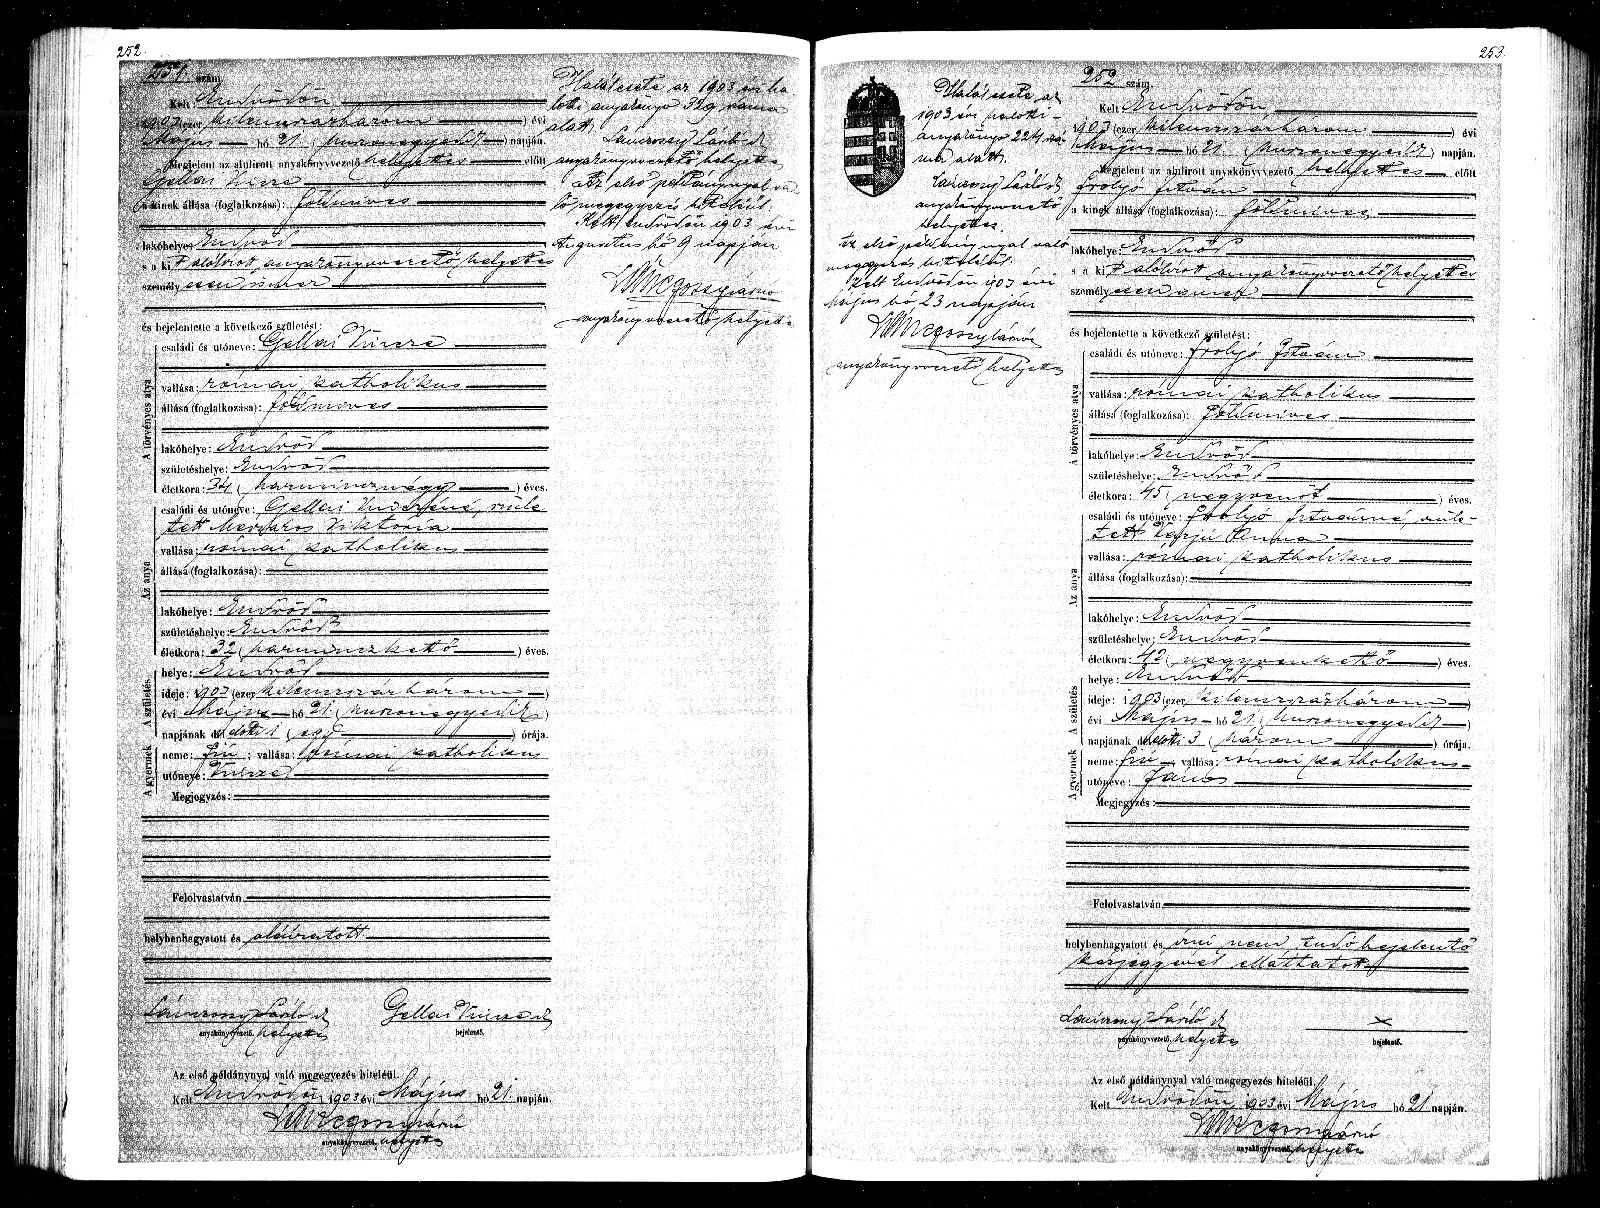 252.
251. szám.
Kelt: Endrődön
1903 (ezer kilenczszázhárom) évi
Május hó 21. (huszonegyedik) napján.
Megjelent az alulirott anyakönyvvezető helyettes előtt
Gellai Vincze
a kinek állása (foglalkozása): földmives
lakóhelye: Endrőd
s a kit alólírott anyakönyvvezető helyettes
személyesen ismer
és bejelentette a következő születést:
A törvényes atya
családi és utóneve: Gellai Vincze
vallása: római katholikus
állása (foglalkozása): földmives
lakóhelye: Endrőd
születéshelye: Endrőd
életkora: 34 (harmincznégy) éves.
Az anya
családi és utóneve: Gellai Vinczéné, szüle-
tett Viktória
vallása: római katholikus
állása (foglalkozása):
lakóhelye: Endrőd
születéshelye: Endrőd
életkora: 32 (harminczkettő) éves.
A születés
helye: Endrőd
ideje: 1903 (ezer kilenczszázhárom)
évi Május hó 21. (huszonegyedik)
napjának délelőtti 1 (egy) órája.
A gyermek
neme: fiú; vallása: római katholikus
utóneve: Vincze
Megjegyzés:
Felolvastatván,
helybenhagyatott és aláiratott
László Gellai Vincze
anyakönyvvezető, helyettes bejelentő.
Az első példánynyal való megegyezés hiteléül.
Kelt Endrődön 1903 évi Május hó 21. napján.
anyakönyvvezető, helyettes
Haláleste az 1903 évi ha-
lotti anyakönyv 329 szám
alatt.
László
anyakönyvvezető helyettes
Az első példánynyal va-
ló megegyezés hiteléül.
Kelt Endrődön 1903 évi
Augusztus hó 9 napján
anyakönyvvezető helyettes
253.
Haláleste az
1903 évi halotti
anyakönyv 224 szá-
ma alatt.
László
anyakönyvvezető
helyettes.
Az első példánynyal való
megegyezés hiteléül.
Kelt Endrődön 1903 évi
Május hó 23 napján
anyakönyvvezető helyettes
252 szám.
Kelt Endrődön
1903 (ezer kilenczszázhárom) évi
Május hó 21. (huszonegyedik) napján.
Megjelent az alulirott anyakönyvvezető helyettes előtt
István
a kinek állása (foglalkozása): földmives
lakóhelye: Endrőd
s a kit alólírott anyakönyvvezető helyettes
személyesen ismer
és bejelentette a következő születést:
A törvényes atya
családi és utóneve: István
vallása: római katholikus
állása (foglalkozása): földmives
lakóhelye: Endrőd
születéshelye: Endrőd
életkora: 45 (negyvenöt) éves.
Az anya
családi és utóneve: Istvánné, szüle-
tett Varjú Anna
vallása: római katholikus
állása (foglalkozása):
lakóhelye: Endrőd
születéshelye: Endrőd
életkora: 42 (negyvenkettő) éves.
A születés
helye: Endrőd
ideje: 1903 (ezer kilenczszázhárom)
évi Május hó 21 (huszonegyedik)
napjának délelőtti 3 (három) órája.
A gyermek
neme: fiú; vallása: római katholikus
utóneve: János
Megjegyzés:
Felolvastatván,
helybenhagyatott és írni nem tudó bejelentő
kézjegyével elláttatott
László x
anyakönyvvezető, helyettes bejelentő.
Az első példánynyal való megegyezés hiteléül.
Kelt Endrődön 1903 évi Május hó 21 napján.
anyakönyvvezető, helyettes